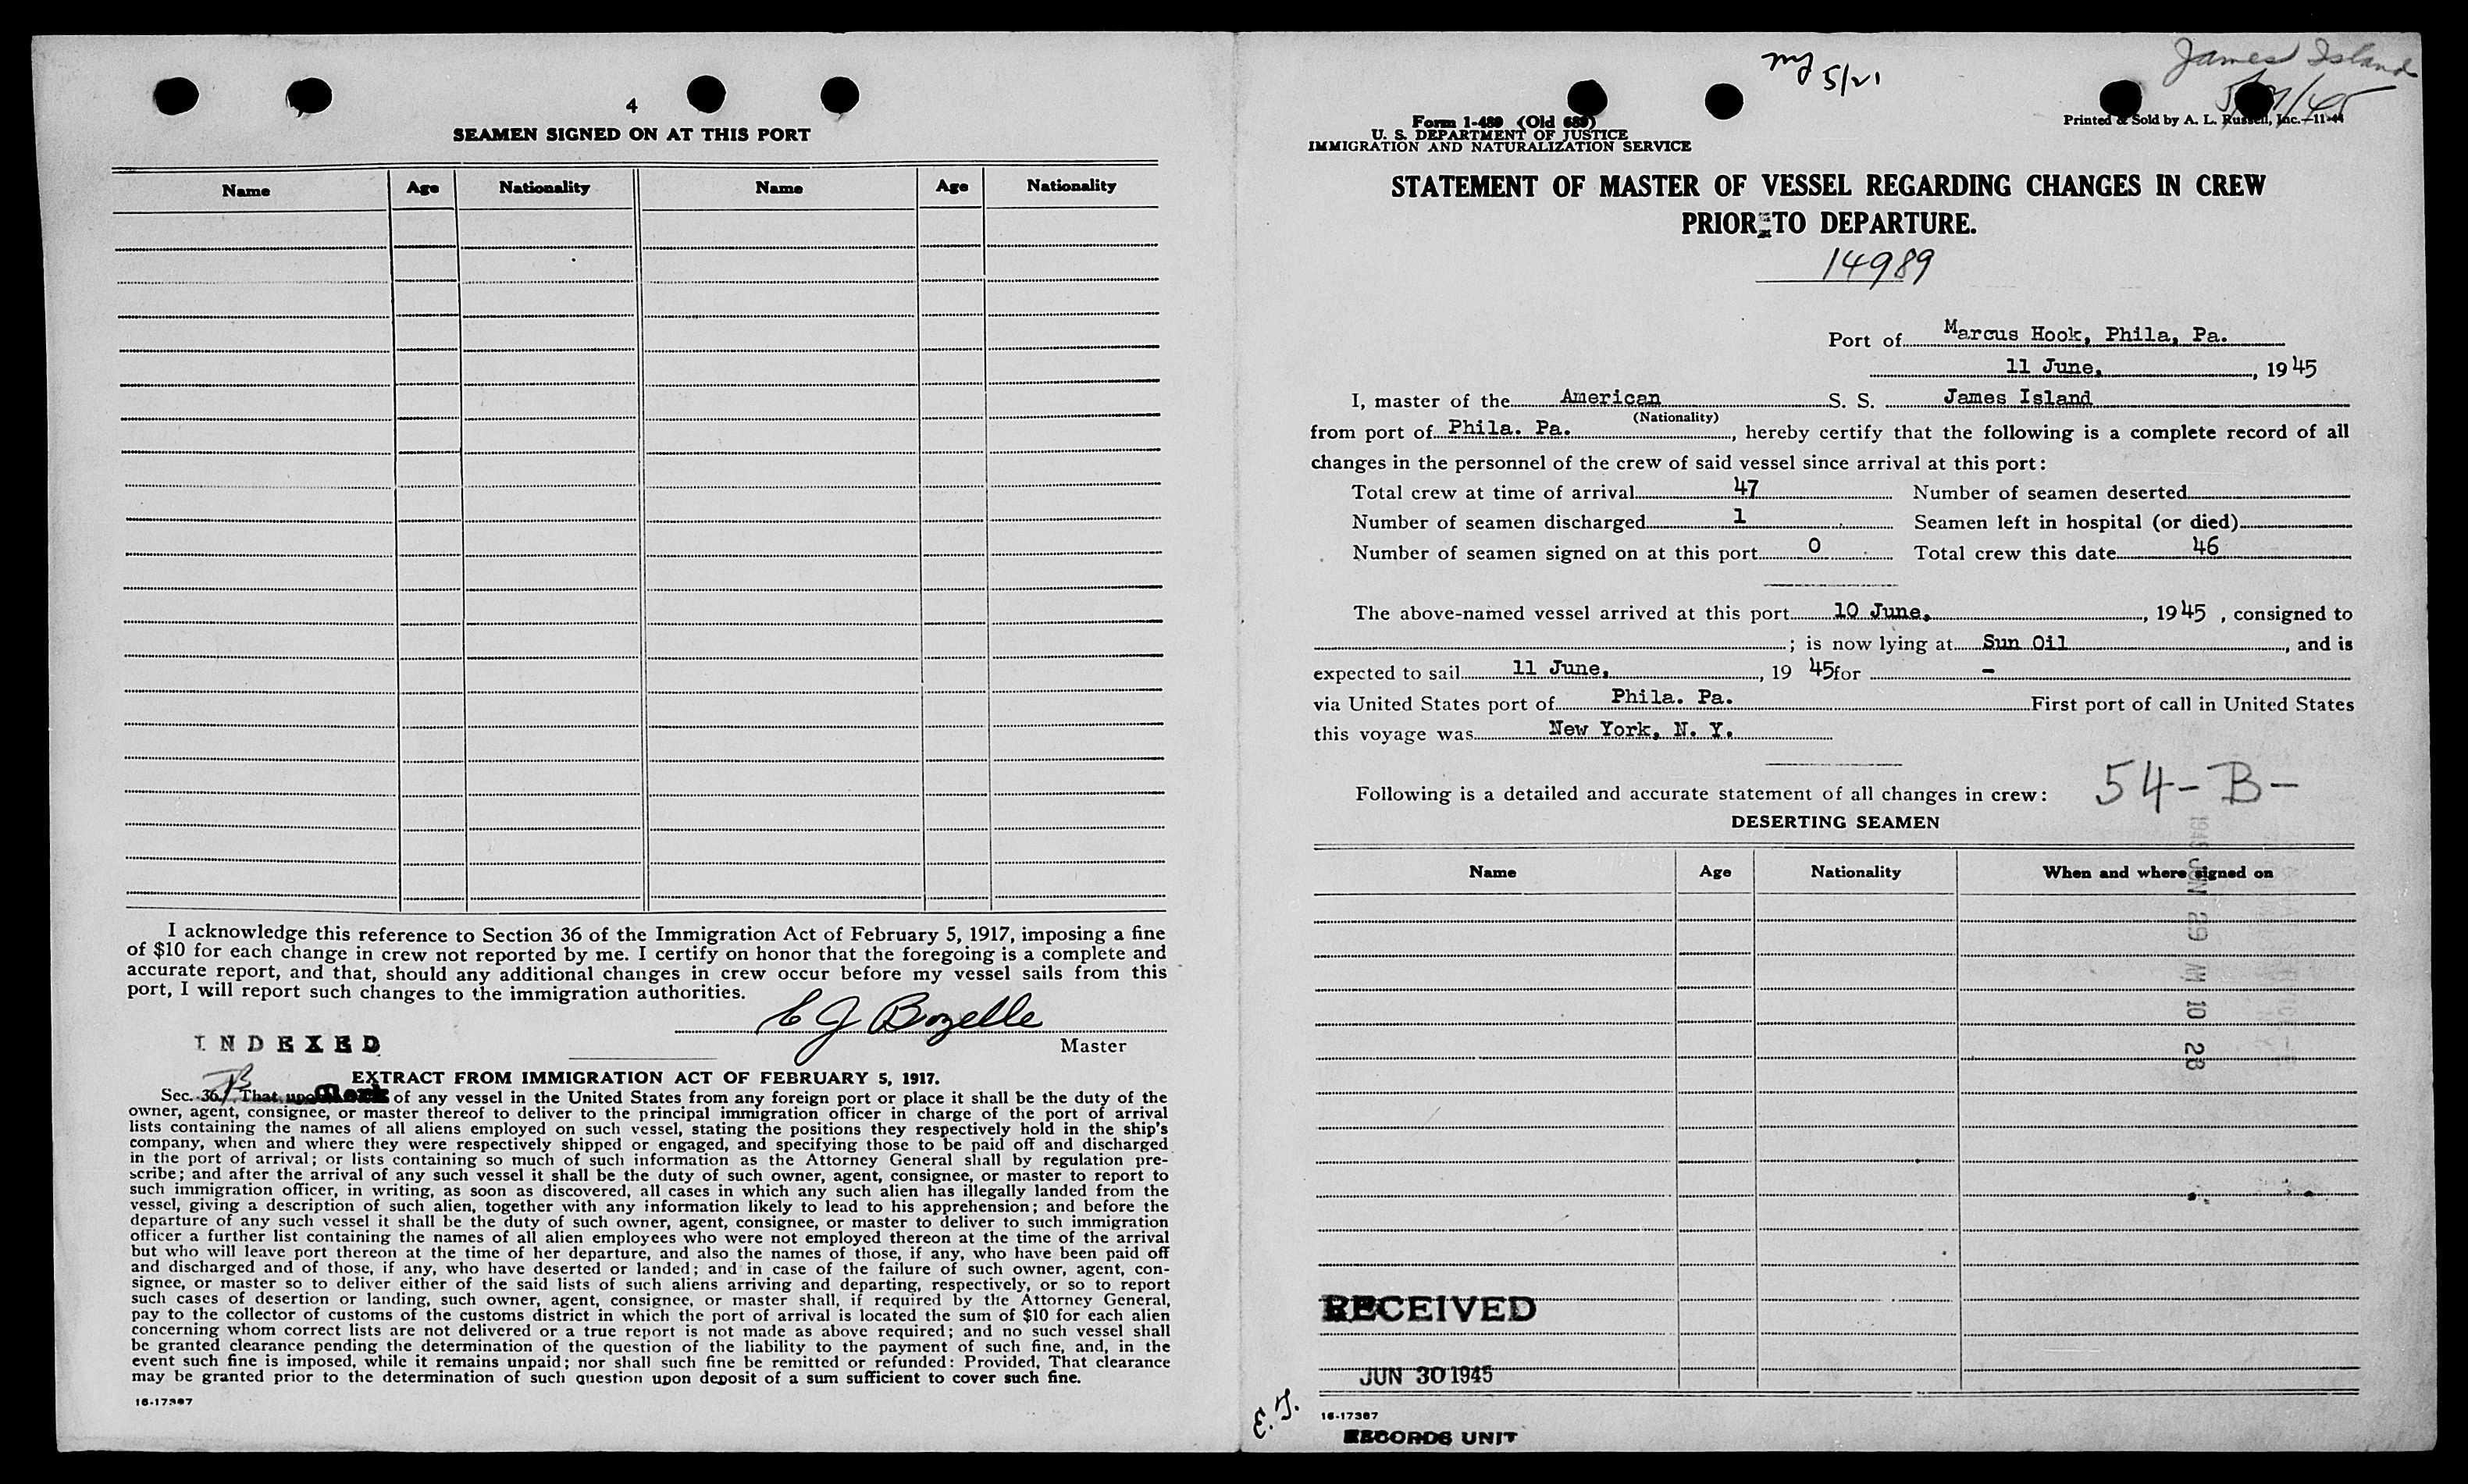 4
SEAMEN SIGNED ON AT THIS PORT
Name Age Nationality Name Age Nationality
I acknowledge this reference to Section 36 of the Immigration Act of February 5, 1917, imposing a fine
of $10 for each change in crew not reported by me. I certify on honor that the foregoing is a complete and
accurate report, and that, should any additional changes in crew occur before my vessel sails from this
port, I will report such changes to the immigration authorities.
E J Bozelle
Master
INDEXED
EXTRACT FROM IMMIGRATION ACT OF FEBRUARY 5, 1917.
Sec. 36. That upon of any vessel in the United States from any foreign port or place it shall be the duty of the
owner, agent, consignee, or master thereof to deliver to the principal immigration officer in charge of the port of arrival
lists containing the names of all aliens employed on such vessel, stating the positions they respectively hold in the ship's
company, when and where they were respectively shipped or engaged, and specifying those to be paid off and discharged
in the port of arrival; or lists containing so much of such information as the Attorney General shall by regulation pre-
scribe; and after the arrival of any such vessel it shall be the duty of such owner, agent, consignee, or master to report to
such immigration officer, in writing, as soon as discovered, all cases in which any such alien has illegally landed from the
vessel, giving a description of such alien, together with any information likely to lead to his apprehension; and before the
departure of any such vessel it shall be the duty of such owner, agent, consignee, or master to deliver to such immigration
officer a further list containing the names of all alien employees who were not employed thereon at the time of the arrival
but who will leave port thereon at the time of her departure, and also the names of those, if any, who have been paid off
and discharged and of those, if any, who have deserted or landed; and in case of the failure of such owner, agent, con-
signee, or master so to deliver either of the said lists of such aliens arriving and departing, respectively, or so to report
such cases of desertion or landing, such owner, agent, consignee, or master shall, if required by the Attorney General,
pay to the collector of customs of the customs district in which the port of arrival is located the sum of $10 for each alien
concerning whom correct lists are not delivered or a true report is not made as above required; and no such vessel shall
be granted clearance pending the determination of the question of the liability to the payment of such fine, and, in the
event such fine is imposed, while it remains unpaid; nor shall such fine be remitted or refunded: Provided, That clearance
may be granted prior to the determination of such question upon deposit of a sum sufficient to cover such fine.
16-17387
James Island
5/21
Form I-489 (Old 689)
U. S. DEPARTMENT OF JUSTICE
IMMIGRATION AND NATURALIZATION SERVICE
Printed & Sold by A. L. Russell, Inc.—11-44
STATEMENT OF MASTER OF VESSEL REGARDING CHANGES IN CREW
PRIOR TO DEPARTURE.
14989
Port of Marcus Hook, Phila, Pa.
11 June, , 1945
I, master of the American S. S. James Island
(Nationality)
from port of Phila. Pa. , hereby certify that the following is a complete record of all
changes in the personnel of the crew of said vessel since arrival at this port:
Total crew at time of arrival 47 Number of seamen deserted
Number of seamen discharged 1 Seamen left in hospital (or died)
Number of seamen signed on at this port 0 Total crew this date 46
The above-named vessel arrived at this port 10 June, , 1945 , consigned to
; is now lying at Sun Oil , and is
expected to sail 11 June, , 19 45 for -
via United States port of Phila. Pa. First port of call in United States
this voyage was New York, N. Y.
Following is a detailed and accurate statement of all changes in crew: 54-B-
DESERTING SEAMEN
Name Age Nationality When and where signed on
1945 JUN 29 AM 10 28
RECEIVED
JUN 30 1945
E.J.
16-17387
RECORDS UNIT